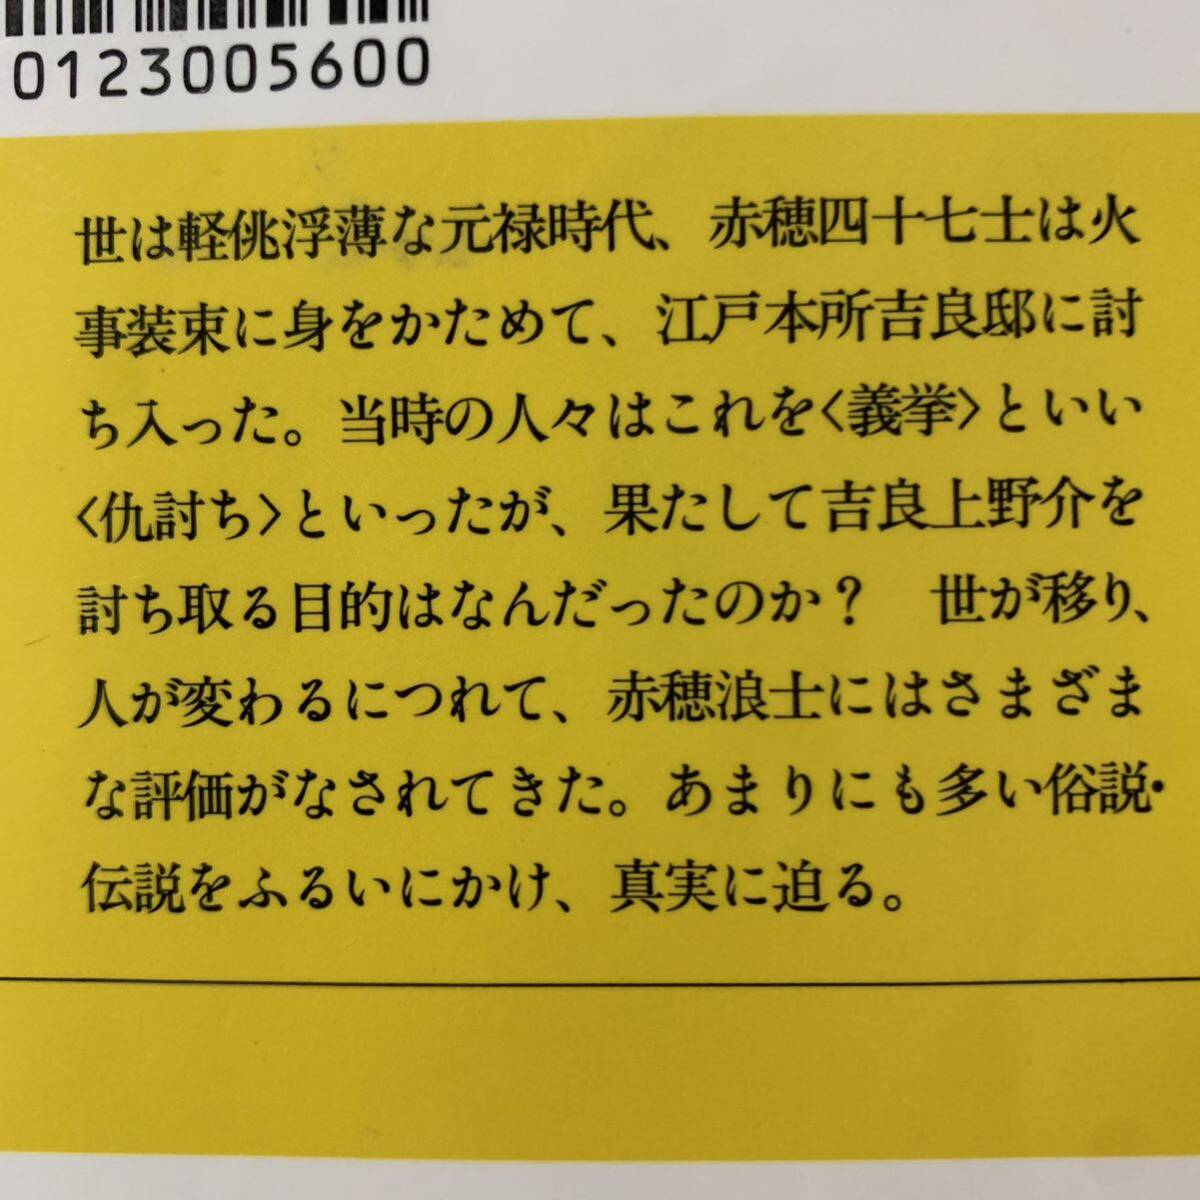 0123005600
世は軽佻浮薄な元禄時代、赤穂四十七士は火
事装束に身をかためて、江戸本所吉良邸に討
ち入った。当時の人々はこれを〈義挙〉といい
〈仇討ち〉といったが、果たして吉良上野介を
討ち取る目的はなんだったのか？　世が移り、
人が変わるにつれて、赤穂浪士にはさまざま
な評価がなされてきた。あまりにも多い俗説・
伝説をふるいにかけ、真実に迫る。